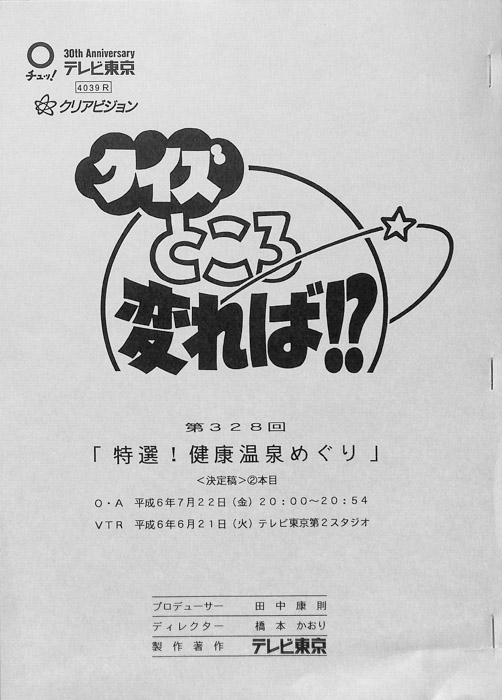 30th Anniversary
チュッ! テレビ東京
4039R
クリアビジョン
クイズ
ところ
変れば!?
第328回
「特選!健康温泉めぐり」
<決定稿>②本目
O・A 平成6年7月22日(金)20:00〜20:54
VTR 平成6年6月21日(火)テレビ東京第2スタジオ
プロデューサー 田中康則
ディレクター 橋本かおり
製作著作 テレビ東京